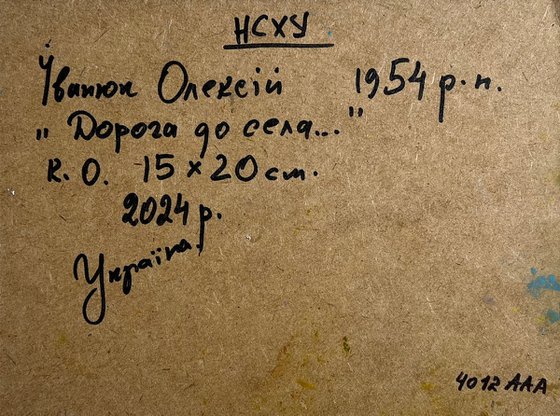 НСХУ
Іванюк Олексій 1954 р.н.
"Дорога до села..."
к.о. 15 x 20 см.
2024 р.
Україна.
4012 AAA